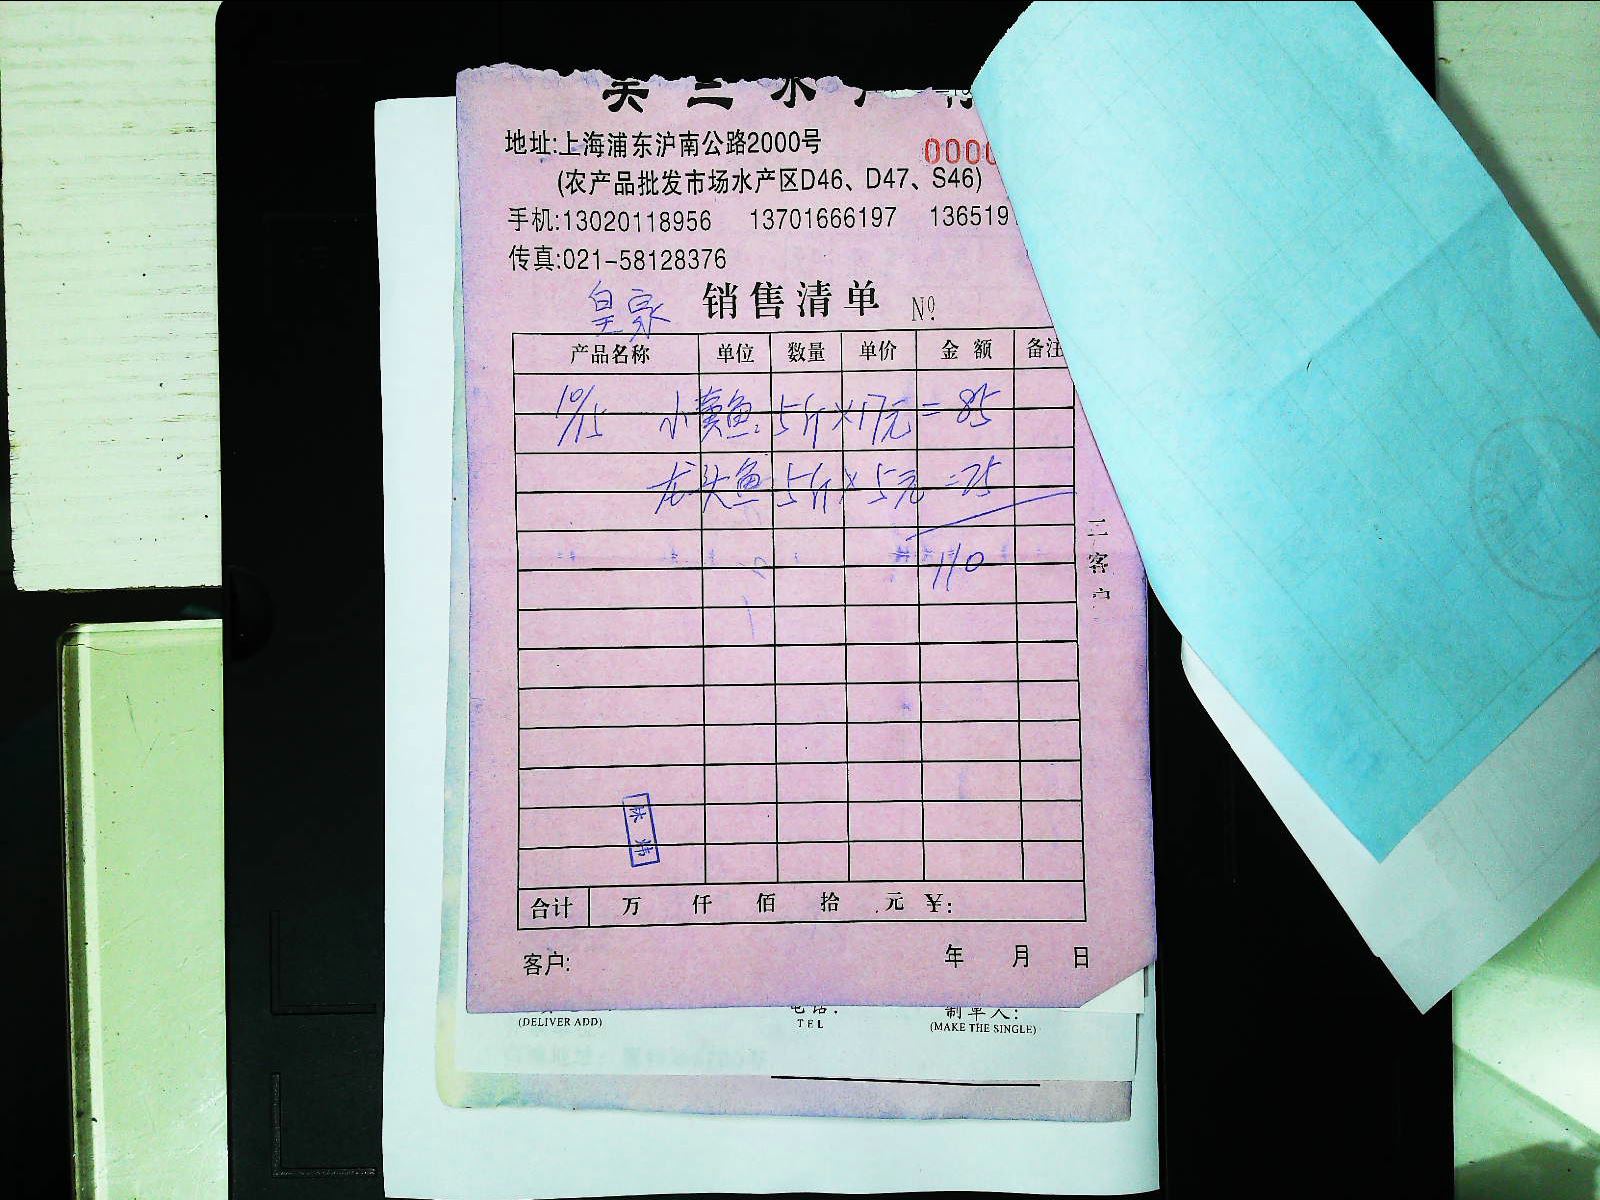 三水
地址:上海浦东沪南公路2000号
0000
(农产品批发市场水产区D46、D47、S46)
手机:13020118956 13701666197 136519
传真:021-58128376
皇家 销售清单 Nº
产品名称 单位 数量 单价 金额 备注
10/15 小黄鱼 5斤×17元=85
龙头鱼 5斤×5元=25
110
三客户
合计 万 仟 佰 拾 元 ¥:
客户: 年 月 日
电话: 制单人:
(DELIVER ADD) TEL (MAKE THE SINGLE)